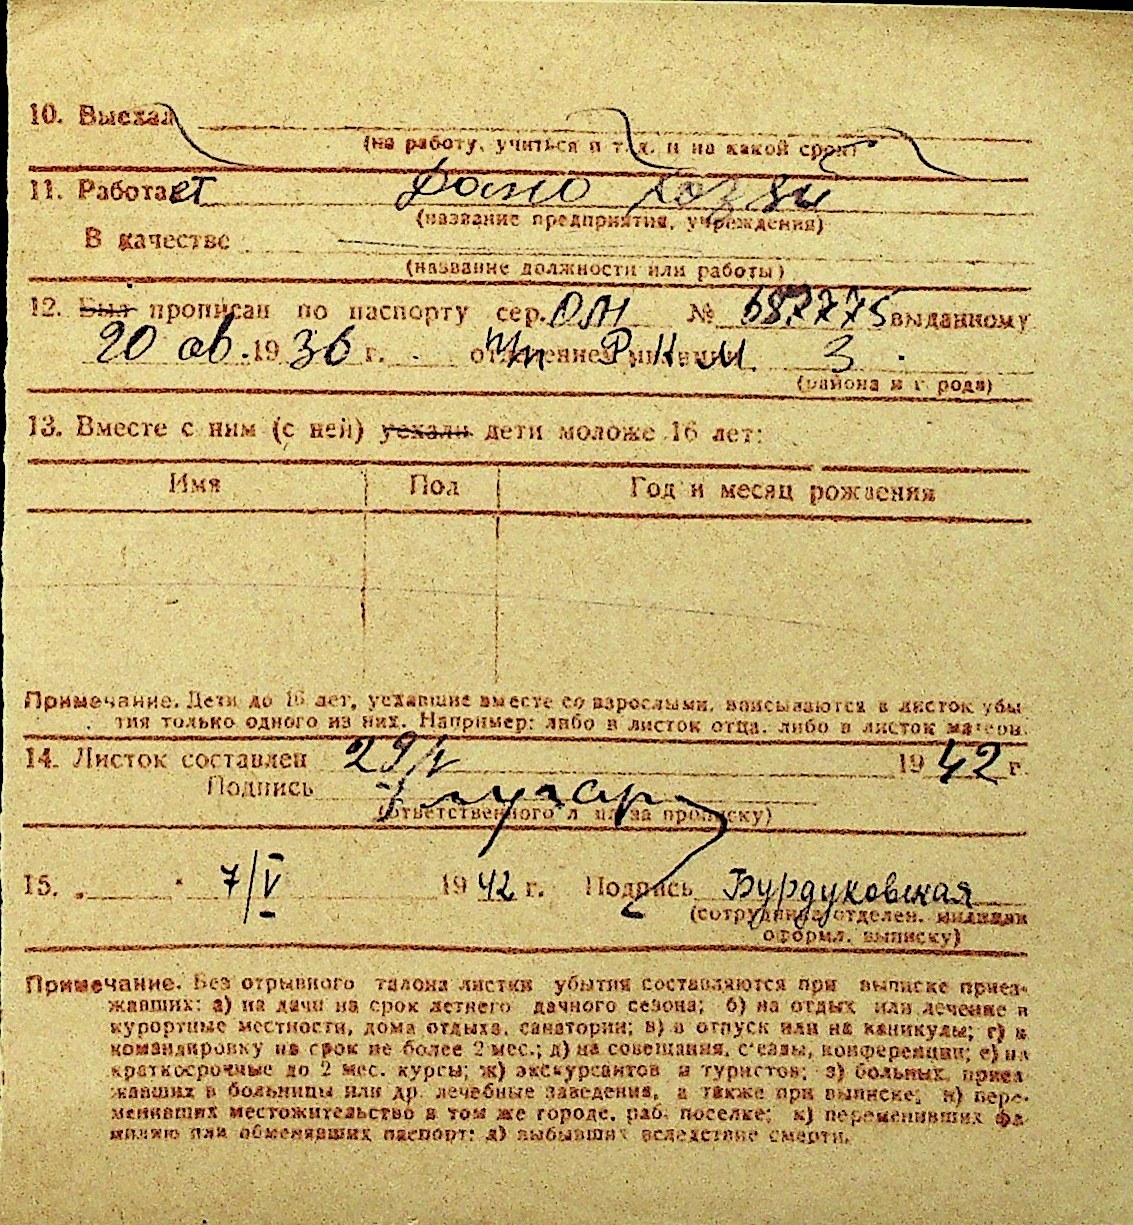 10. Выехал
(на работу, учиться и т. д. и на какой срок)
11. Работает домо хозяй
(название предприятия, учреждения)
В качестве
(название должности или работы)
12. Был прописан по паспорту сер. ОЛН № 687775 выданному
20 ав. 1936 г. отделением милиции Р.К.М. 3
(района и города)
13. Вместе с ним (с ней) уехали дети моложе 16 лет:
Имя Пол Год и месяц рождения
Примечание. Дети до 16 лет, уехавшие вместе со взрослыми, вписываются в листок убы
тия только одного из них. Например: либо в листок отца, либо в листок матери.
14. Листок составлен 29/V 1942 г.
Подпись
(ответственного лица за прописку)
15. „ “ 7/V 1942 г. Подпись Бурдуковская
(сотрудника отделен. милиции
оформл. выписку)
Примечание. Без отрывного талона листки убытия составляются при выписке приез-
жавших: а) на дачи на срок летнего дачного сезона; б) на отдых или лечение в
курортные местности, дома отдыха, санатории; в) в отпуск или на каникулы; г) в
командировку на срок не более 2 мес.; д) на совещания, с'езды, конференции; е) на
краткосрочные до 2 мес. курсы; ж) экскурсантов и туристов; з) больных, приез
жавших в больницы или др. лечебные заведения, а также при выписке; и) пере-
менивших местожительство в том же городе, раб. поселке; к) переменивших фа-
милию или обменявших паспорт; л) выбывших вследствие смерти.